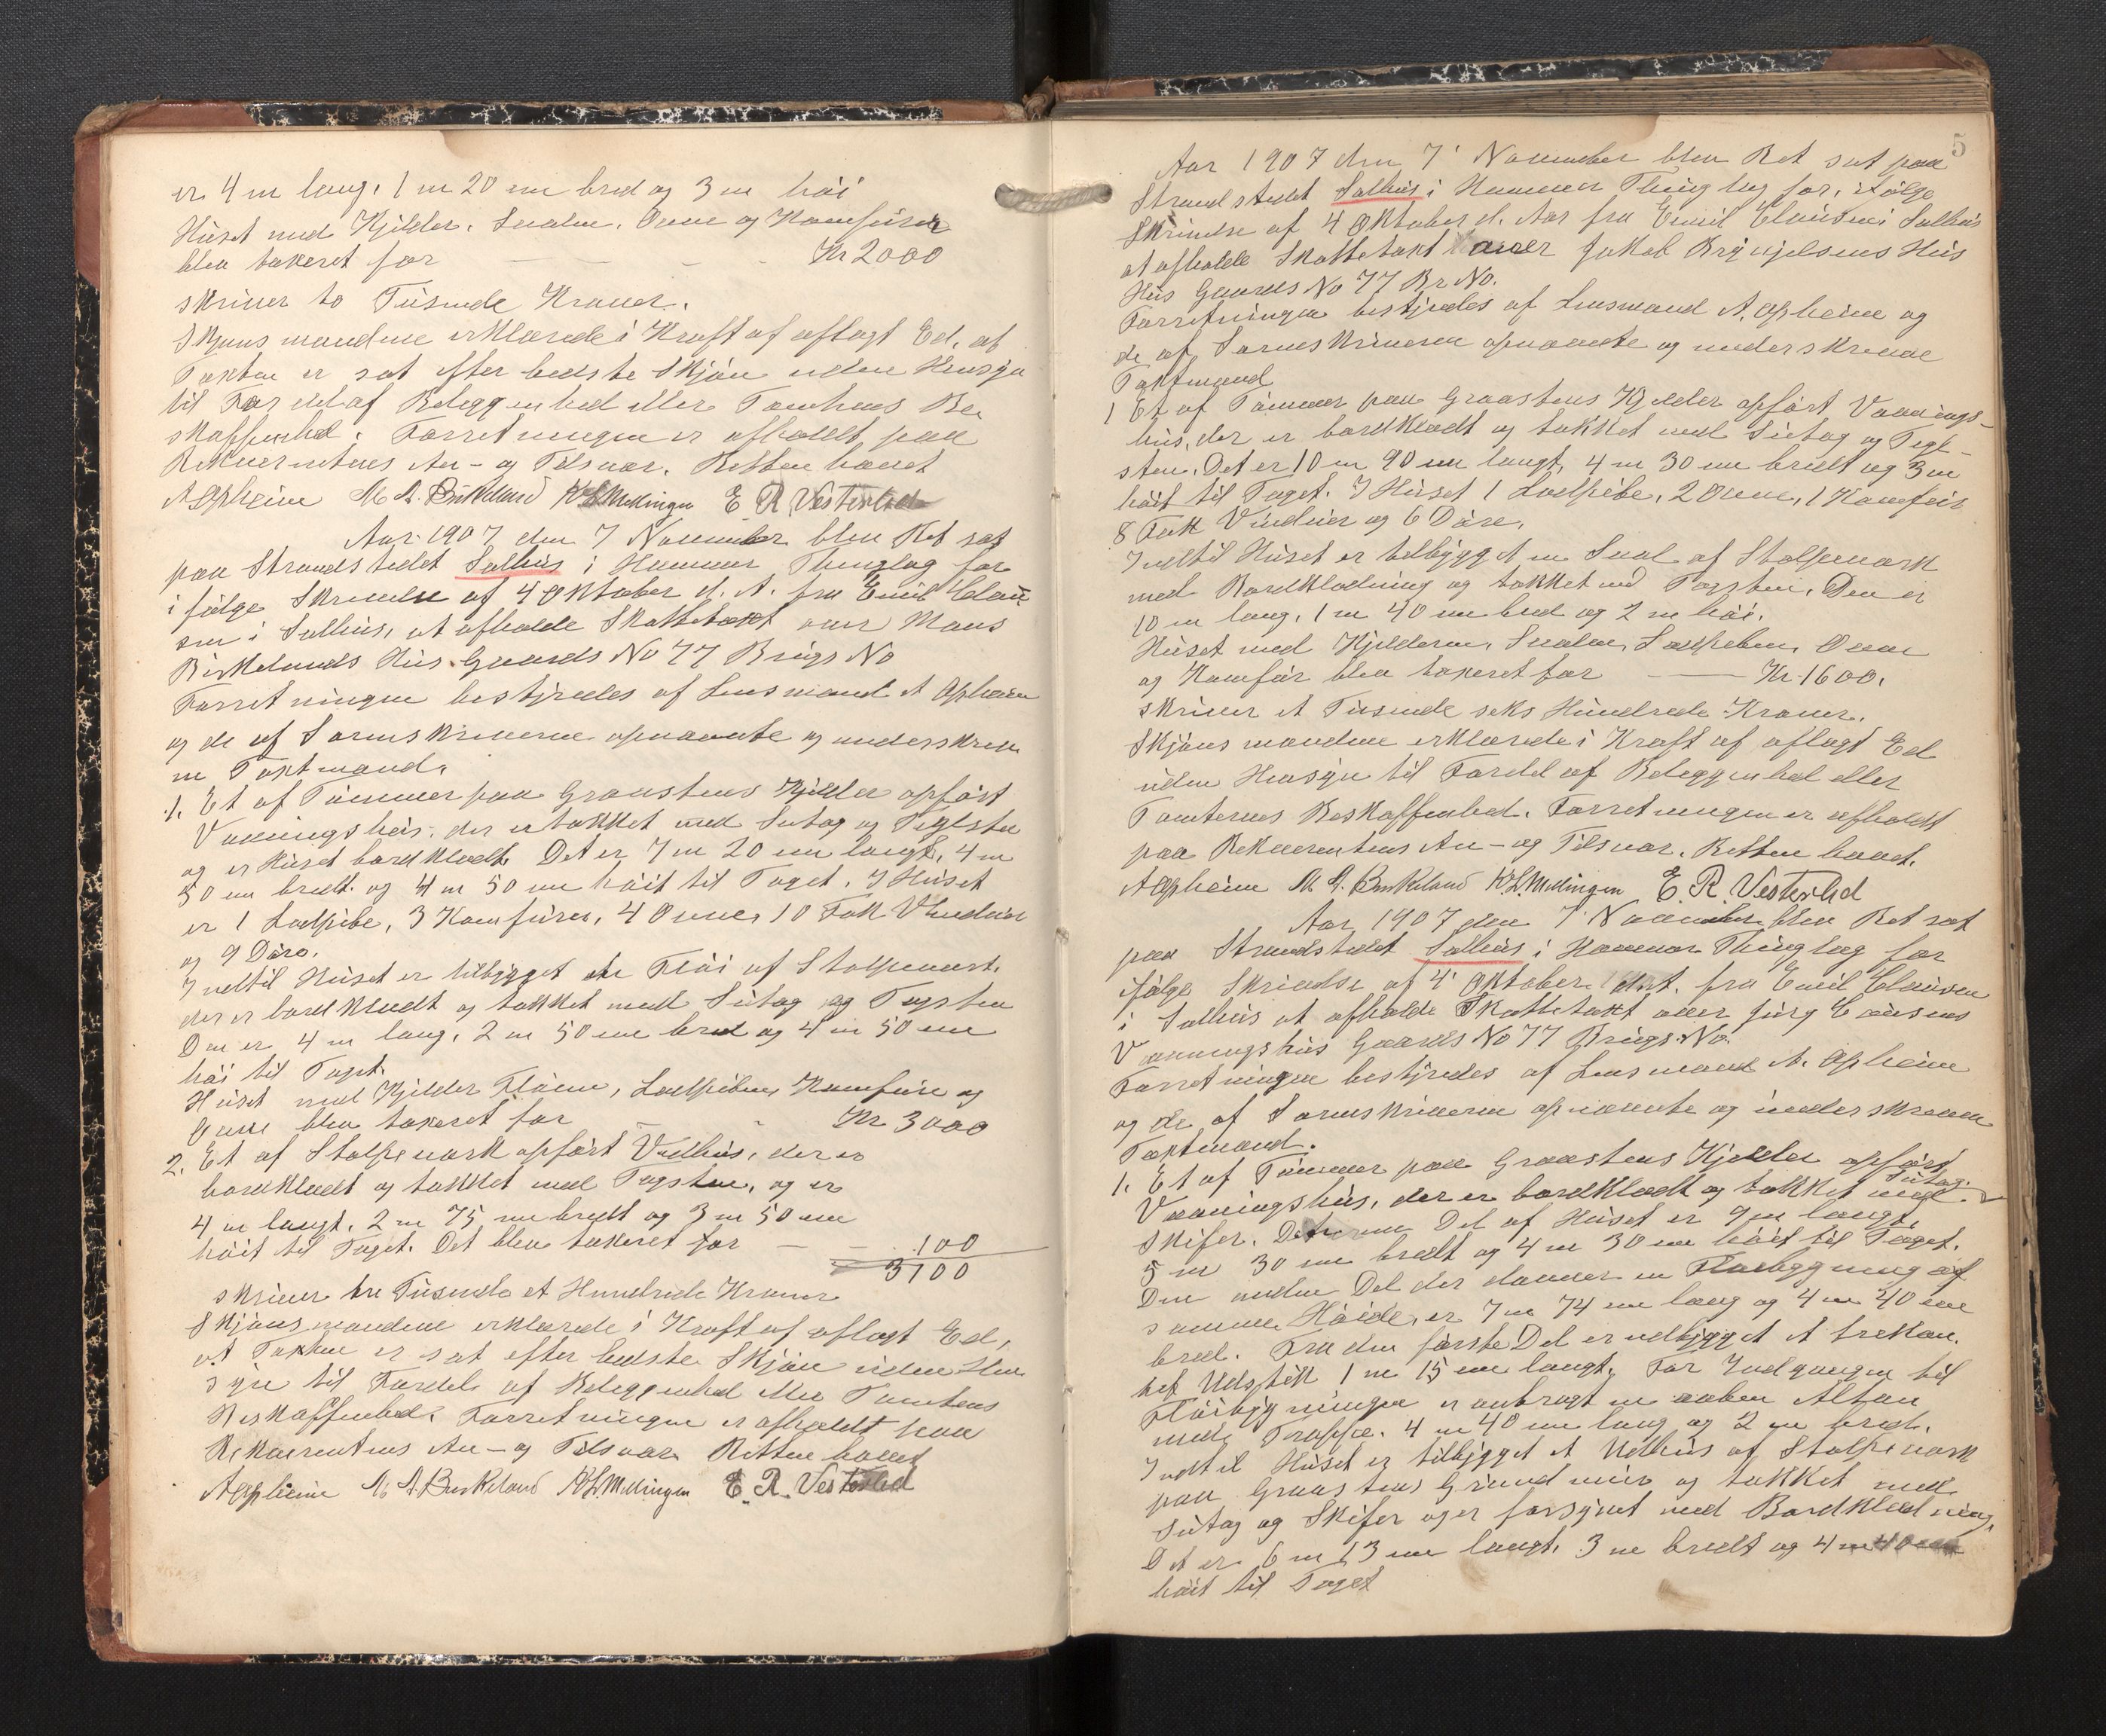 er 4 m lang, 1 m 20 cm bred og 3 m høi
Huset med Kjelder, Svalen, Ovne og Komfurer
blev taxeret for — — — — Kr 2000
skriver to Tusinde Kroner.
Skjønsmændene erklærede i Kraft af aflagt Ed, at
Taxten er sat efter bedste Skjøn uden Hensyn
til Fordel af Beliggenhed eller Tomtens Be
skaffenhed. Forretningen er afholdt paa
Rekvirentens An- og Tilsvar. Retten hævet
A Apheim M. A. Birkeland K L Mellingen E R Vesterlid
Aar 1907 den 7 November blev Ret sat
paa Strandstedet Salhus i Hammer Thinglag for
i følge Skrivelse af 4 Oktober d. A. fra Emil Clau
sen i Salhus, at afholde Skattetaxt over Mons
Birkelands Hus. Gaards No 77 Brugs No
Forretningen bestyredes af Lensmand A Apheim
og de af Sorenskriveren opnævnte og underskrev
ne Taxtmænd.
1. Et af Tømmer paa Graastens Kjelder opført
Vaaningshus, der er tækket med Sutag og Teglsten
og er Huset bordklædt. Det er 7 m 20 cm langt, 4 m
50 cm bredt og 4 m 50 cm høit til Taget. I Huset
er 1 Ladpibe, 3 Komfurer, 4 Ovne, 10 Fak Vinduer
og 9 Døre.
Indtil Huset er tilbygget en Fløi af Stolpeverk,
der er bordklædt og tækket med Sutag og Tagsten
Den er 4 m lang, 2 m 50 cm bred og 4 m 50 cm
høi til Taget.
Huset med Kjelder Fløien, Ladpiben, Komfure og
Ovne blev taxeret for — - Kr 3000
2. Et af Stolpeverk opført Vedhus, der er
bordklædt og tækket med Tagsten, og er
4 m langt, 2 m 75 cm bredt og 3 m 50 cm
høit til Taget. Det blev taxeret for — — 100
3100
skriver tre Tusinde et Hundrede Kroner
Skjønsmændene erklærede i Kraft af aflagt Ed,
at Taxten er sat efter bedste Skjøn uden Hen
syn til Fordel af Beliggenhed eller Tomtens
Beskaffenhed. Forretningen er afholdt paa
Rekvirentens An- og Tilsvar Retten hævet
A Apheim M. A. Birkeland K L Mellingen E. R. Vesterlid
5
Aar 1907 den 7' November blev Ret sat paa
Strandstedet Salhus i Hammer Thinglag for, ifølge
Skrivelse af 4 Oktober d. Aar fra Emil Clausen i Salhus
at afholde Skattetaxt over Jakob Brynjelsens Hus
Hus Gaards No 77 Br No.
Forretningen bestyredes af Lensmand A. Apheim og
de af Sorenskriveren opnævnte og underskrevne
Taxtmænd
1 Et af Tømmer paa Graastens Kjelder opført Vaanings-
hus, der er bordklædt og tækket med Sutag og Tegl-
sten. Det er 10 m 90 cm langt, 4 m 30 cm bredt og 3 m
høit til Taget. I Huset 1 Ladpibe, 2 Ovne, 1 Komfur
8 Fak Vinduer og 6 Døre.
Indtil Huset er tilbygget en Sval af Stolpeverk
med Bordklædning og tækket med Tagsten. Den er
10 m lang, 1 m 40 cm bred og 2 m høi.
Huset med Kjelderen, Svalen, Ladpiben, Ovne
og Komfur blev taxeret for —— Kr. 1600.
skriver et Tusinde seks Hundrede Kroner.
Skjønsmændene erklærede i Kraft af aflagt Ed
uden Hensyn til Fordel af Beliggenhed eller
Tomternes Beskaffenhed. Forretningen er afholdt
paa Rekvirentens An- og Tilsvar. Retten hævet.
A Apheim M. A. Birkeland K. L. Mellingen E. R. Vesterlid
Aar 1907 den 7' November blev Ret sat
paa Strandstedet Salhus i Hammer Thinglag for
ifølge Skrivelse af 4' Oktober fra Emil Clausen
i Salhus at afholde Skattetaxt over
Vaaningshus Gaards No 77 Brugs No.
Forretningen bestyredes af Lensmand A. Apheim
og de af Sorenskriveren opnævnte og underskrevne
Taxtmænd.
1. Et af Tømmer paa Graastens Kjelder opført
Vaaningshus, der er bordklædt og tækket med Sutag.
Skifer. Den ene Del af Huset er 9 m langt,
5 m 30 cm bredt og 4 m 30 cm høit til Taget.
Den anden Del der danner en Fløibygning af
samme Høide, er 7 m 74 cm lang og 4 m 40 cm
bred. Fra den første Del er udbygget et trekan
tet Udstik 1 m 15 cm langt. For Indgangen til
Fløibygningen er anbragt en aaben Altan
med Trappe. 4 m 40 cm lang og 2 m bred.
Indtil Huset er tilbygget et Udhus af Stolpeverk
paa Graastens Grundmur og tækket med
Sutag og Skifer og er forsynet med Bordklædning.
Det er 6 m 13 cm langt, 3 m bredt og 4 m 40 cm
høit til Taget